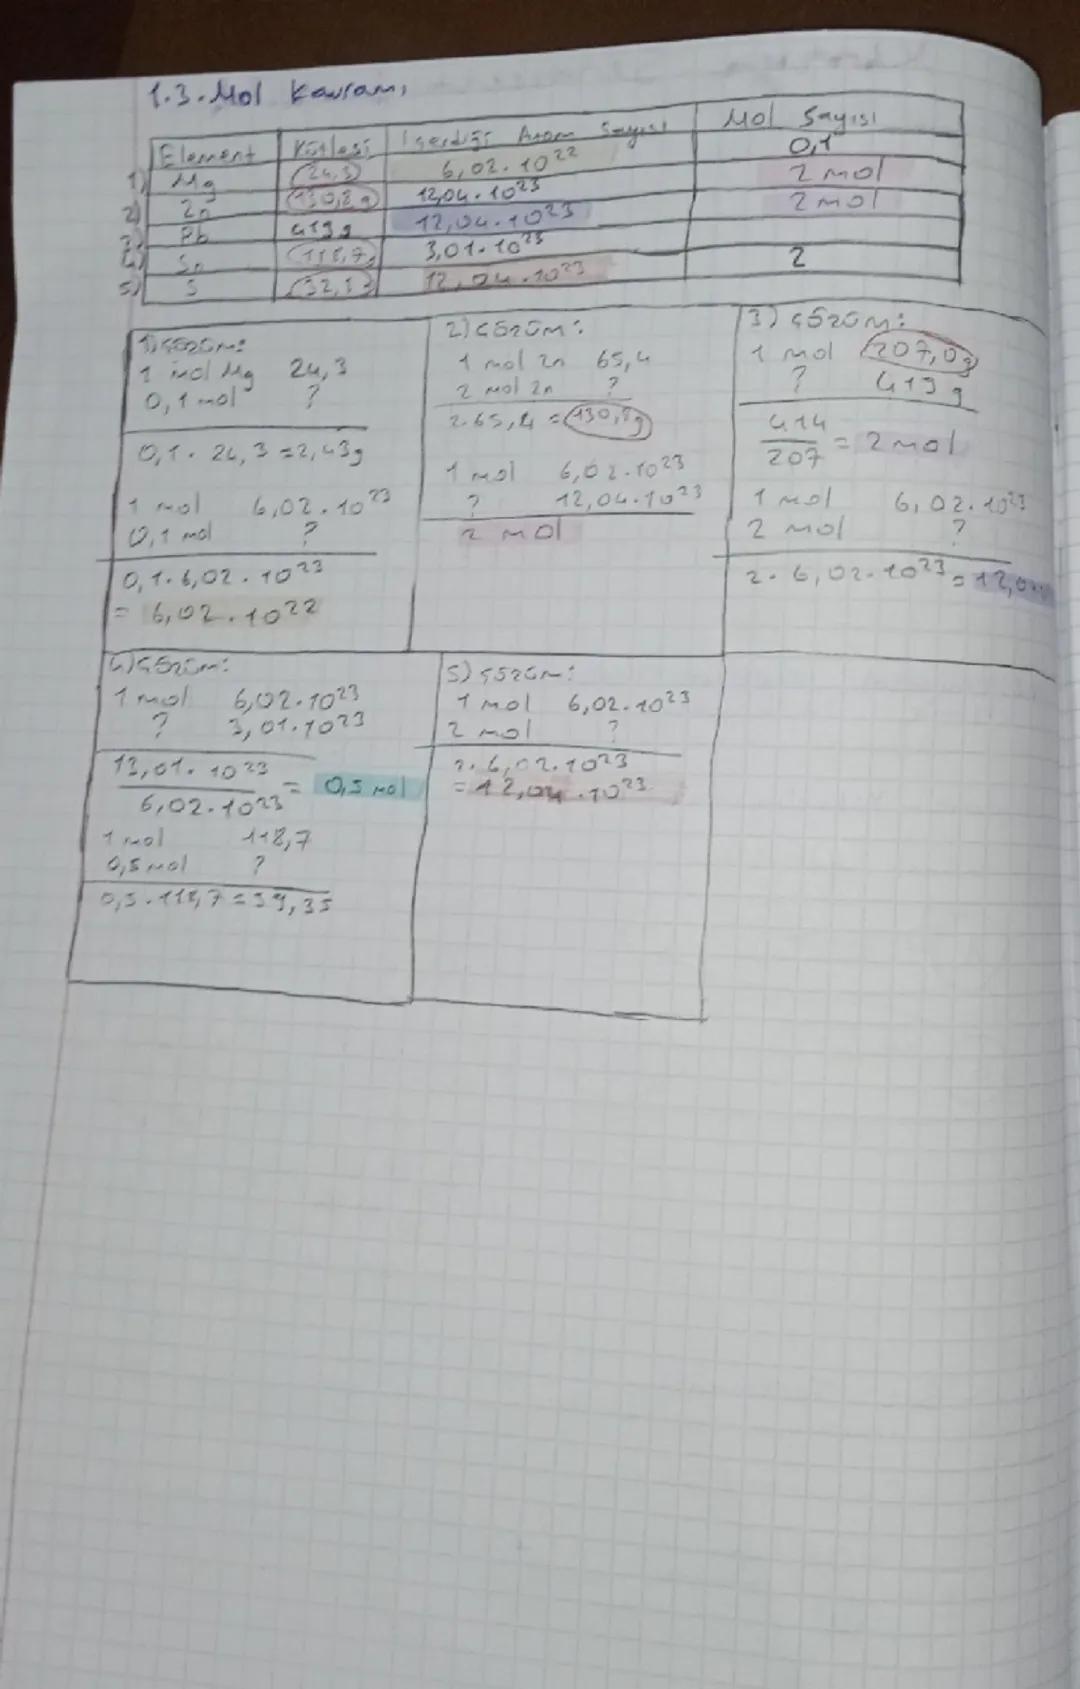 1.3. Mol Kavramı
Element Kütlesi İçerdiği Atom Sayısı Mol Sayısı
1) Mg 24,3 6,02.10²² 0,1
2) Zn 130,8 g 12,04.10²³ 2 mol
3) Pb 419 g 12,04.10²³ 2 mol
4) Sn 118,7 3,01.10²³
5) S 12,04.10²³ 2
1) Çözüm:
1 mol Mg 24,3
0,1 mol ?
0,1. 24,3 = 2,43g
1 mol 6,02.10²³
0,1 mol ?
0,1.6,02.10²³
= 6,02.10²²
2) Çözüm:
1 mol Zn 65,4
2 mol Zn ?
2.65,4 = 130,8g
1 mol 6,02.10²³
? 12,04.10²³
2 mol
3) Çözüm:
1 mol 207,0g
? 419 g
414
207
= 2 mol
1 mol 6,02.10²³
2 mol ?
2.6,02.10²³ = 12,0
4) Çözüm:
1 mol 6,02.10²³
? 3,01.10²³
13,01.10²³
6,02.10²³
= 0,5 mol
1 mol 118,7
0,5 mol ?
0,5.118,7 = 59,35
5) Çözüm:
1 mol 6,02.10²³
2 mol ?
2.6,02.10²³
= 12,04.10²³